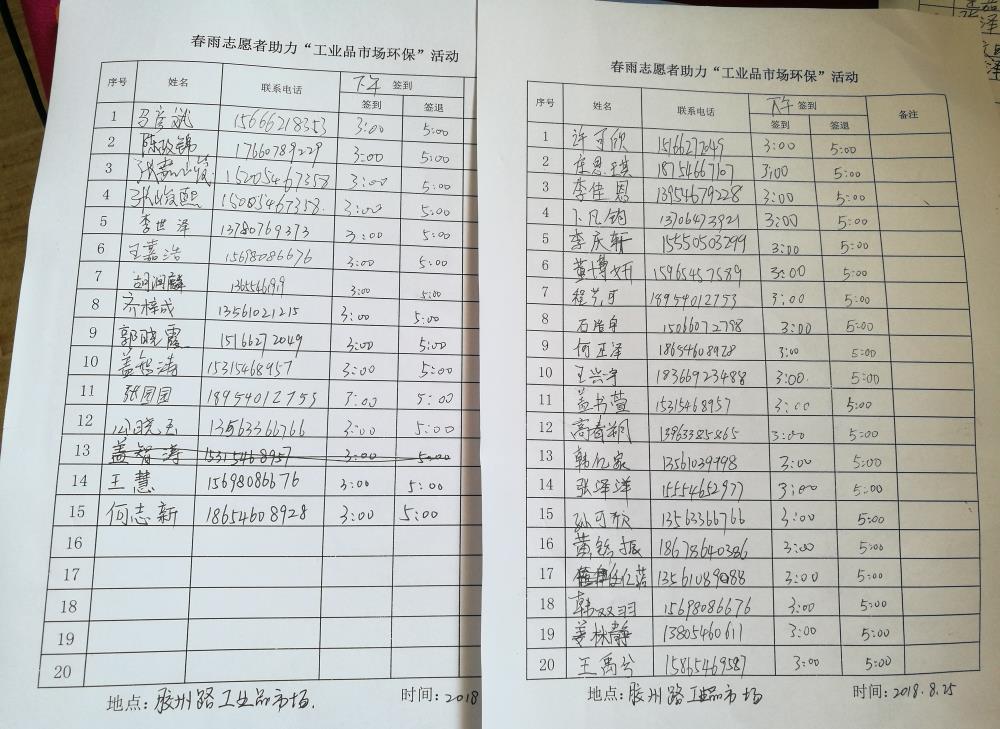 春雨志愿者助力“工业品市场环保”活动
序号 姓名 联系电话 下午 签到
签到 签退
1 15666218353 3:00 5:00
2 陈政锦 17660789229 3:00 5:00
3 15005467358 3:00 5:00
4 张峻熙 15005467358 3:00 5:00
5 李世泽 13780769373 3:00 5:00
6 王嘉浩 15698086676 3:00 5:00
7 胡润麟 3:00 5:00
8 齐梓成 13561021215 3:00 5:00
9 郭晓霞 15166272049 3:00 5:00
10 盖智涛 15315468957 3:00 5:00
11 张园园 18954012753 3:00 5:00
12 13563366766 3:00 5:00
13 盖智涛 15315468957 3:00 5:00
14 王慧 15698086676 3:00 5:00
15 何志新 18654608928 3:00 5:00
16
17
18
19
20
地点：胶州路工业品市场. 时间：2018
春雨志愿者助力“工业品市场环保”活动
序号 姓名 联系电话 下午 签到 备注
签到 签退
1 许可欣 3:00 5:00
2 庄恩琪 18754667107 3:00 5:00
3 李佳恩 13954679228 3:00 5:00
4 13706473921 3:00 5:00
5 李庆轩 15550503299 3:00 5:00
6 黄博妍 15965457589 3:00 5:00
7 程艺可 18954012753 3:00 5:00
8 石浩宇 15066072798 3:00 5:00
9 何正泽 18654608928 3:00 5:00
10 王兴宇 18366923488 3:00 5:00
11 盖书萱 15315468957 3:00 5:00
12 13963385865 3:00 5:00
13 韩亿家 13561039998 3:00 5:00
14 张泽洋 15554652977 3:00 5:00
15 孙可欣 13563366766 3:00 5:00
16 18678640386 3:00 5:00
17 13561089088 3:00 5:00
18 韩双羽 15698086676 3:00 5:00
19 姜林静 13805460611 3:00 5:00
20 王禹兮 15865469587 3:00 5:00
地点：胶州路工业品市场 时间：2018.8.25